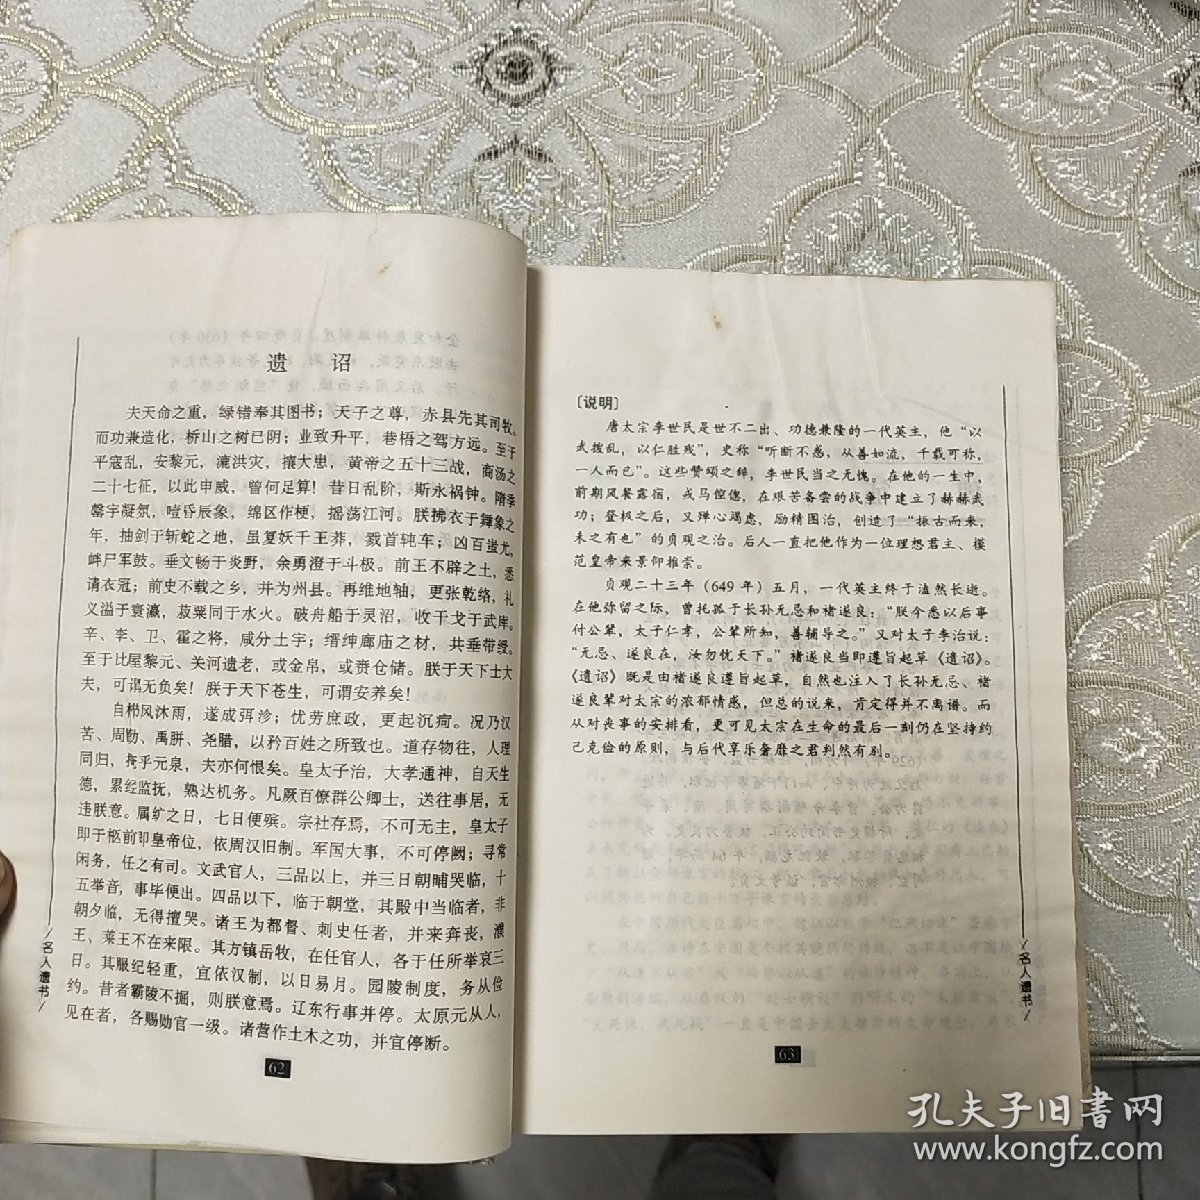 遗 诏
夫天命之重，绿错奉其图书；天子之尊，赤县先其司牧。
而功兼造化，桥山之树已阴；业致升平，苍梧之驾方远。至于
平寇乱，安黎元，漉洪灾，攘大患，黄帝之五十三战，商汤之
二十七征，以此申威，曾何足算！昔日乱阶，斯永祸钟。隋季
罄宇凝氛，曀昏辰象，绵区作梗，摇荡江河。朕拂衣于舞象之
年，抽剑于斩蛇之地，虽复妖千王莽，戮首轘车；凶百蚩尤，
衅尸军鼓。垂文畅于炎野，余勇澄于斗极。前王不辟之土，悉
请衣冠；前史不载之乡，并为州县。再维地轴，更张乾络，礼
义溢于寰瀛，菽粟同于水火。破舟船于灵沼，收干戈于武库。
辛、李、卫、霍之将，咸分土宇；缙绅廊庙之材，共垂带绶。
至于比屋黎元、关河遗老，或金帛，或赍仓储。朕于天下士大
夫，可谓无负矣！朕于天下苍生，可谓安养矣！
自栉风沐雨，遂成弭沴；忧劳庶政，更起沉疴。况乃汉
苦、周勤、禹胼、尧腊，以矜百姓之所致也。道存物往，人理
同归，掩乎元泉，夫亦何恨矣。皇太子治，大孝通神，自天生
德，累经监抚，熟达机务。凡厥百僚群公卿士，送往事居，无
违朕意。属纩之日，七日便殡。宗社存焉，不可无主，皇太子
即于柩前即皇帝位，依周汉旧制。军国大事，不可停阙；寻常
闲务，任之有司。文武官人，三品以上，并三日朝晡哭临，十
五举音，事毕便出。四品以下，临于朝堂，其殿中当临者，非
朝夕临，无得擅哭。诸王为都督、刺史任者，并来奔丧，濮
王、莱王不在来限。其方镇岳牧，在任官人，各于任所举哀三
日。其服纪轻重，宜依汉制，以日易月。园陵制度，务从俭
约。昔者霸陵不掘，则朕意焉。辽东行事并停。太原元从人，
见在者，各赐勋官一级。诸营作土木之功，并宜停断。
/名人遗书/
62
〔说明〕
唐太宗李世民是世不二出、功德兼隆的一代英主，他“以
武拨乱，以仁胜残”，史称“听断不惑，从善如流，千载可称，
一人而已”。这些赞颂之辞，李世民当之无愧。在他的一生中，
前期风餐露宿，戎马倥偬，在艰苦备尝的战争中建立了赫赫武
功；登极之后，又殚心竭虑，励精图治，创造了“振古而来，
未之有也”的贞观之治。后人一直把他作为一位理想君主、模
范皇帝来景仰推崇。
贞观二十三年（649年）五月，一代英主终于溘然长逝。
在他弥留之际，曾托孤于长孙无忌和褚遂良：“朕今悉以后事
付公辈，太子仁孝，公辈所知，善辅导之。”又对太子李治说：
“无忌、遂良在，汝勿忧天下。”褚遂良当即遵旨起草《遗诏》。
《遗诏》既是由褚遂良遵旨起草，自然也注入了长孙无忌、褚
遂良辈对太宗的浓郁情感，但总的说来，肯定得并不离谱。而
从对丧事的安排看，更可见太宗在生命的最后一刻仍在坚持约
己克俭的原则，与后代享乐奢靡之君判然有别。
/名人遗书/
63
孔夫子旧书网
www.kongfz.com